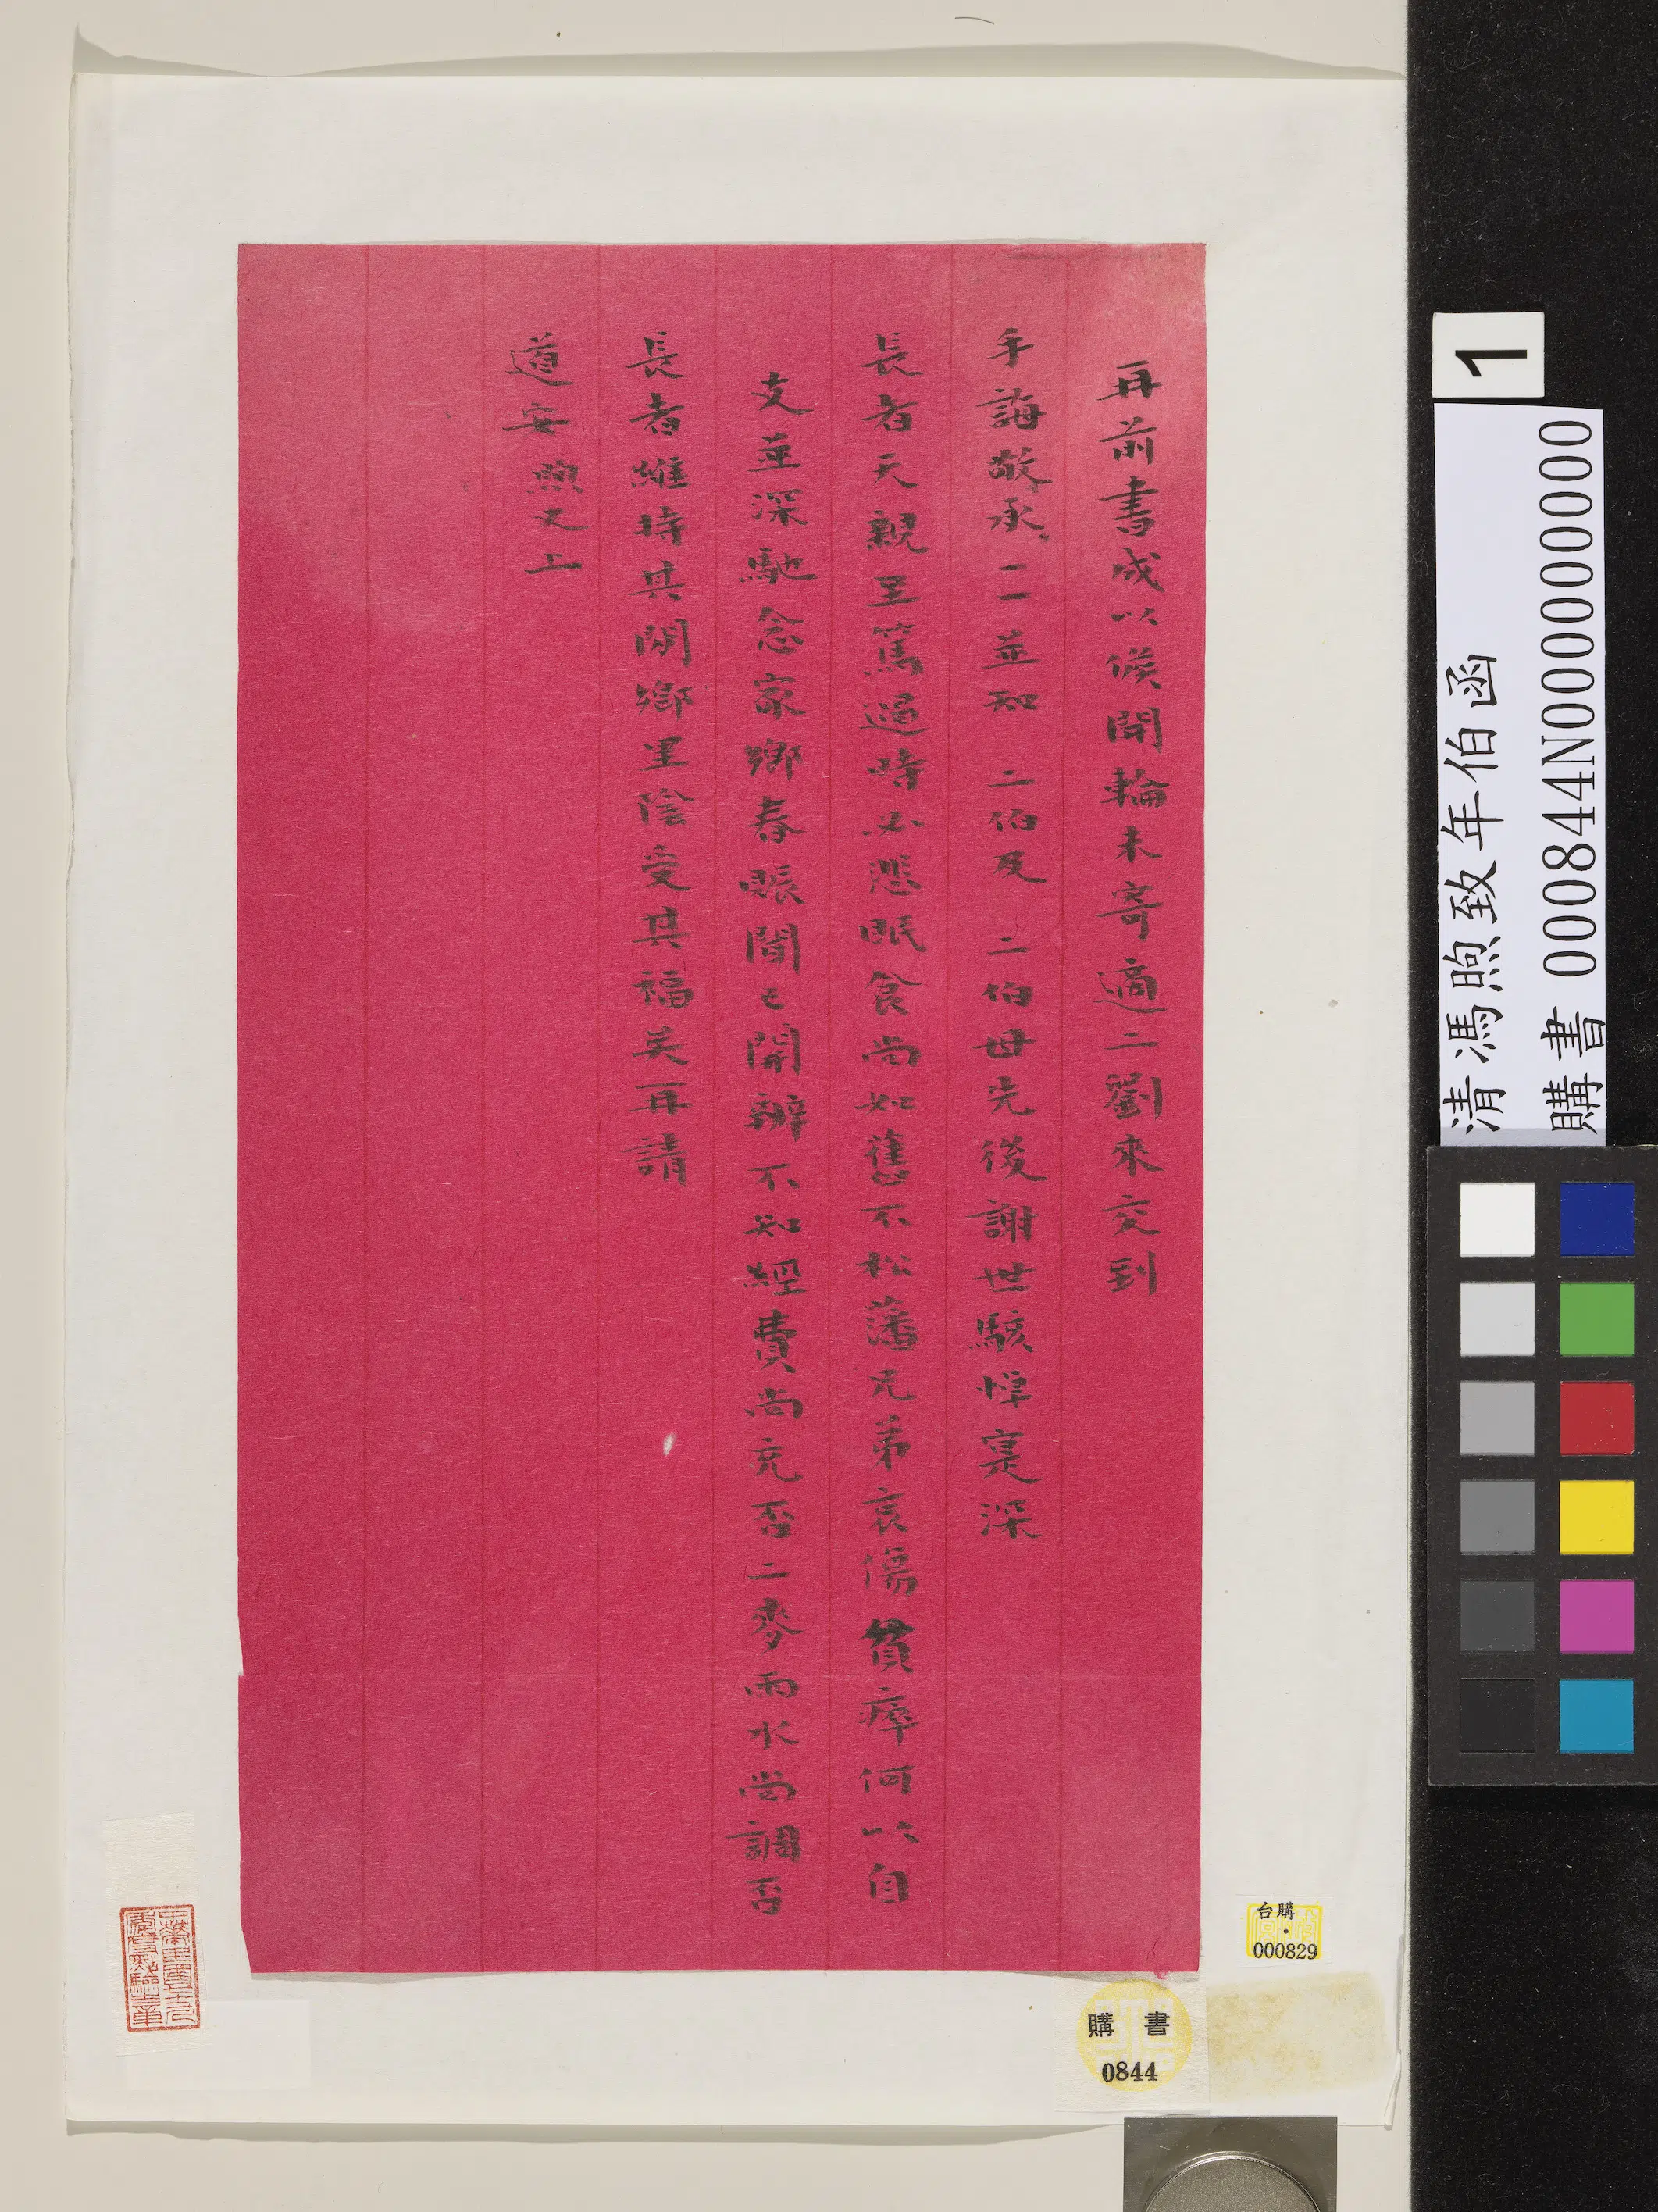 再前書成以候開輪未寄適二劉來交到
手誨敬承一一並知 二伯及 二伯母先後謝世駭悼寔深
長者天親至篤過時必悲眠食尚如舊不松藩兄弟哀傷貧瘁何以自
支並深馳念家鄉春賑聞已開辦不知經費尚充否二麥雨水尚調否
長者維持其間鄉里陰受其福矣再請
道安 煦又上
1
清馮煦致年伯函
購書 000844N000000000
台購
000829
購 書
0844